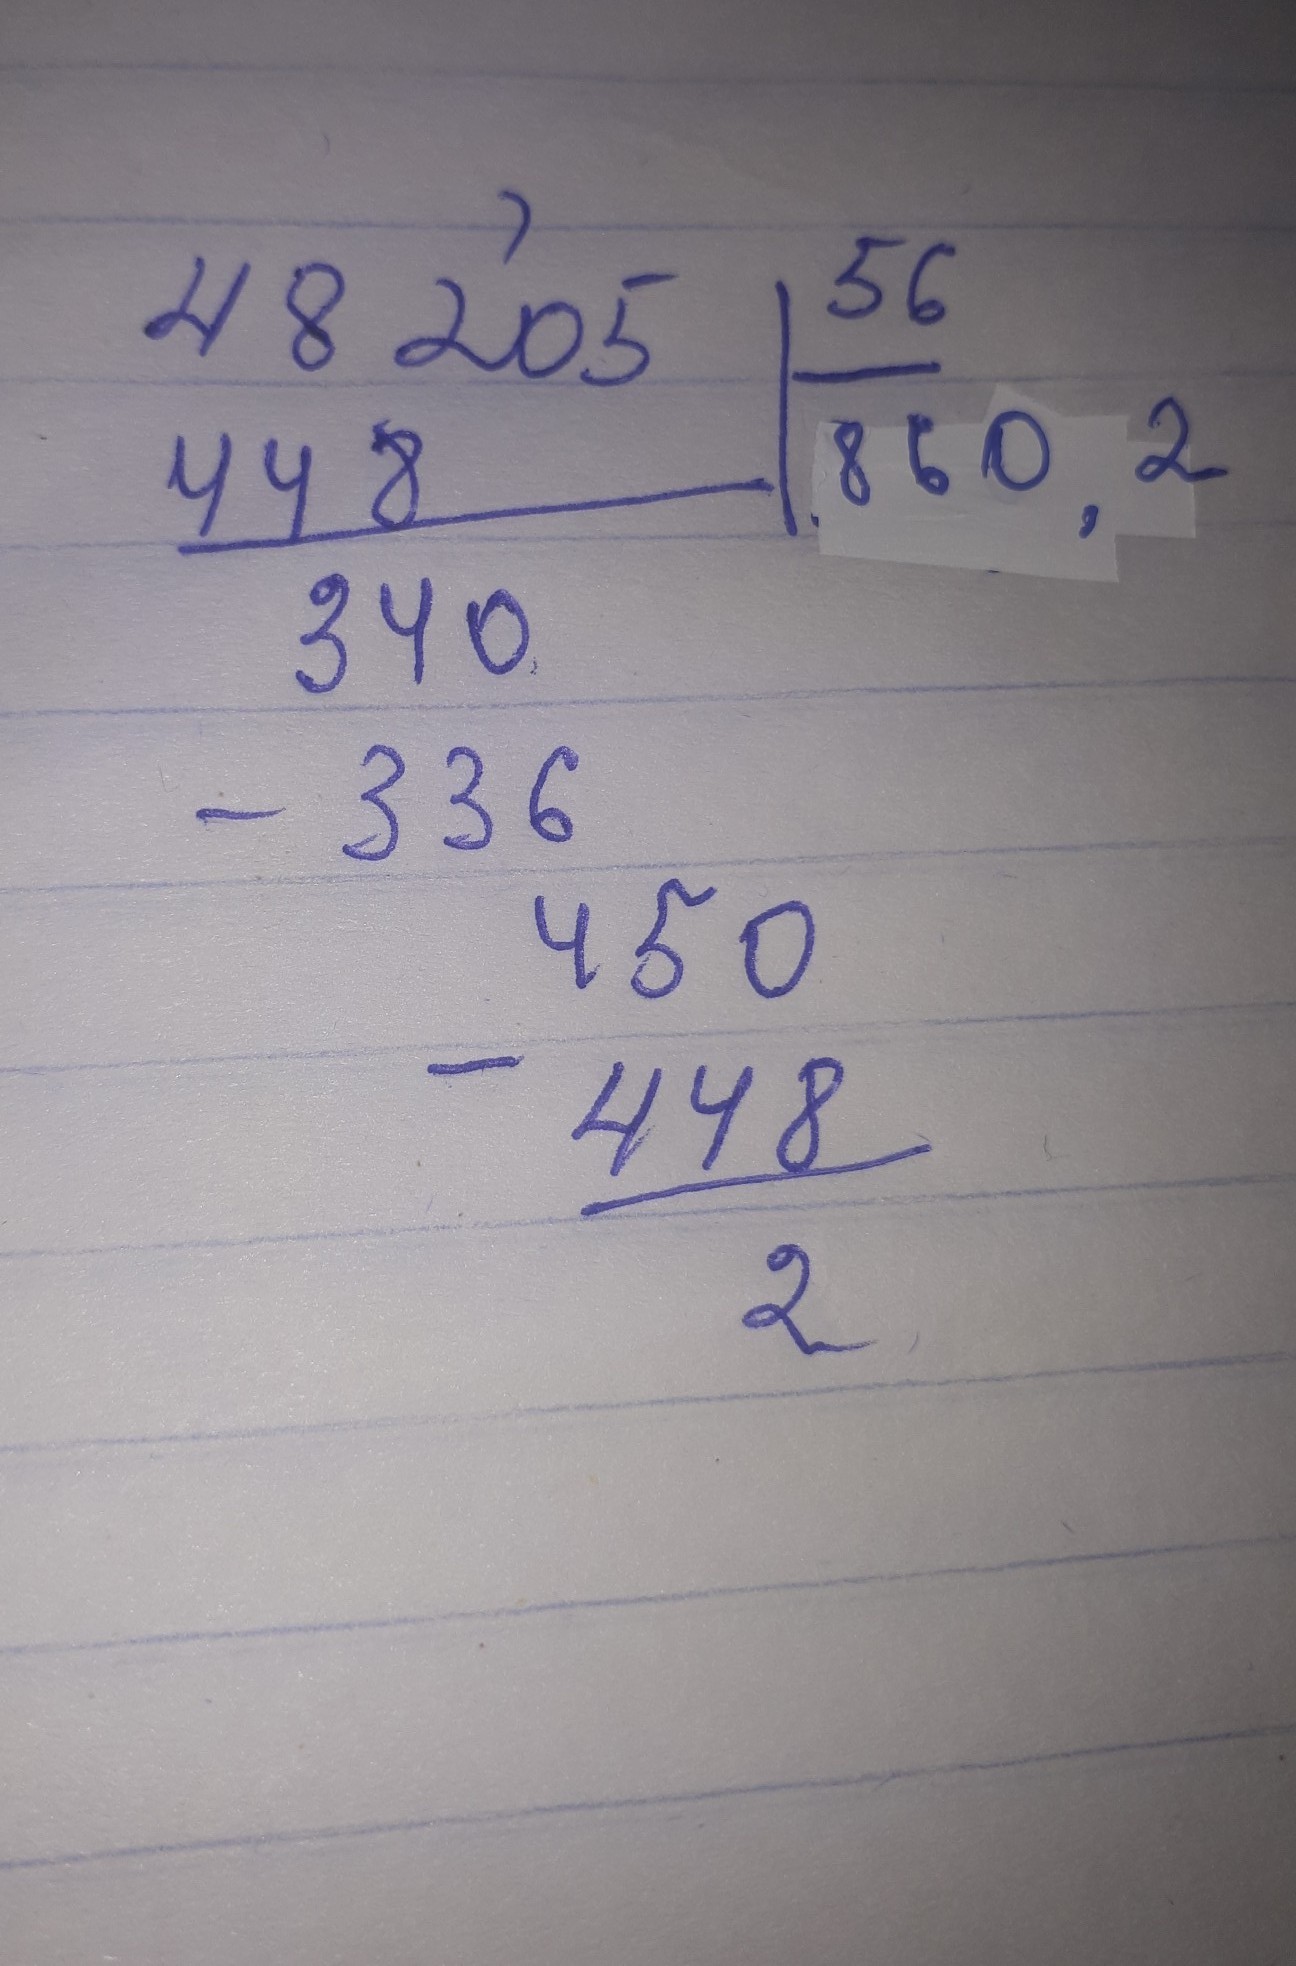 48 2'05 56
448 860,2
340
- 336
450
- 448
2